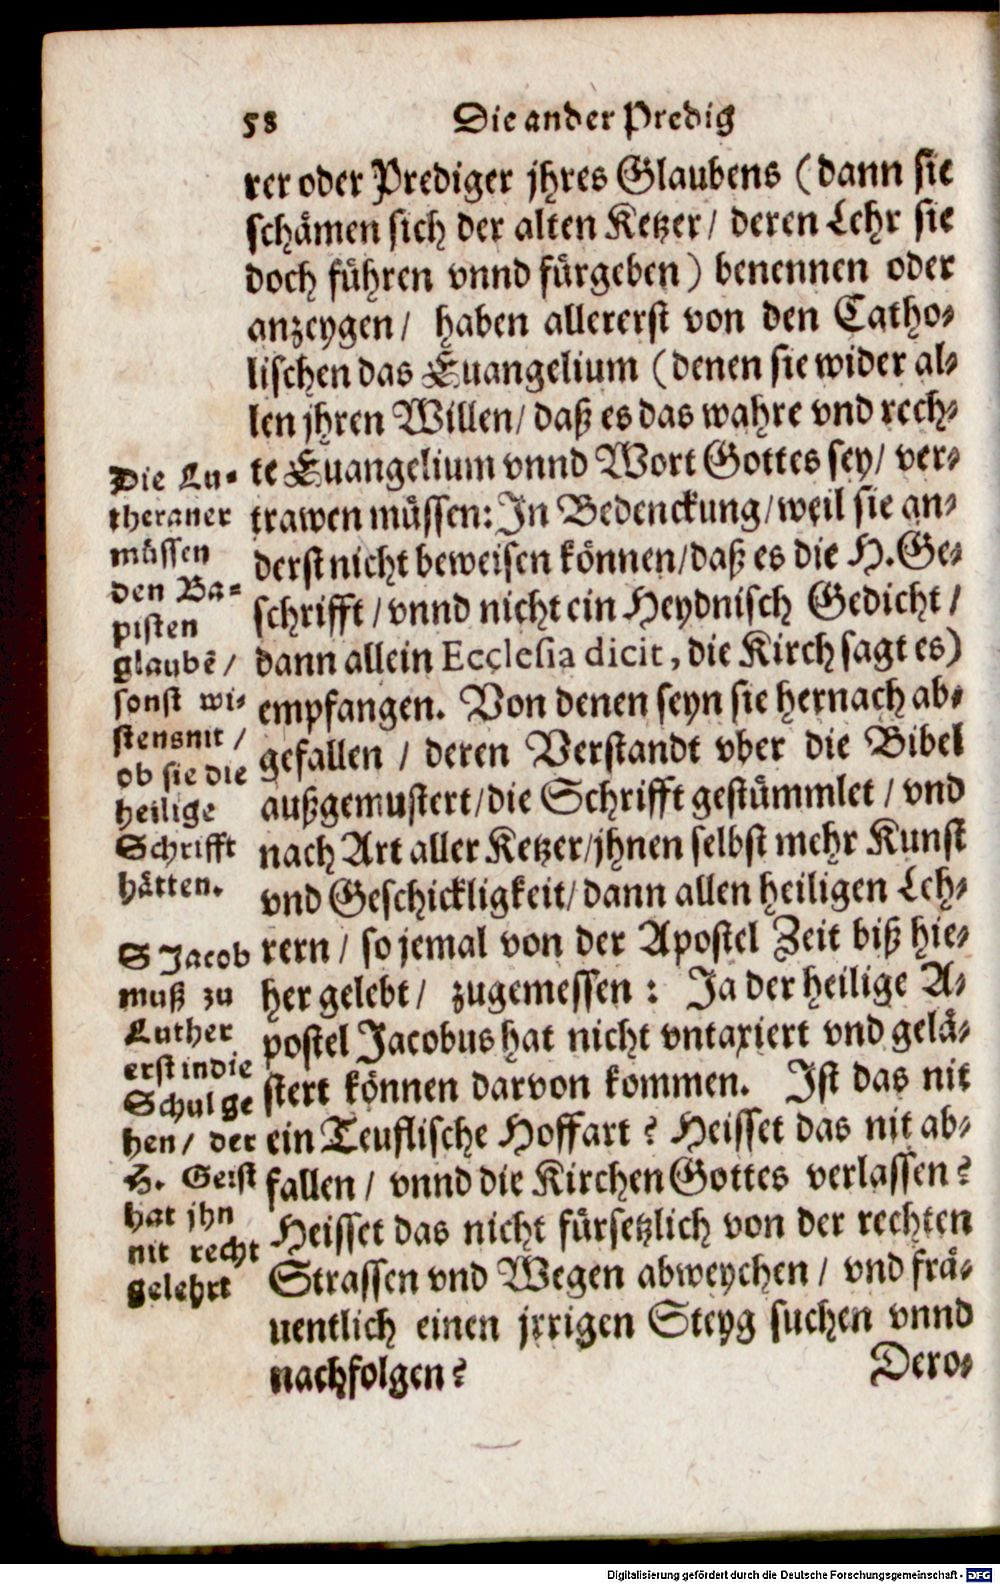 58 Die ander Predig
rer oder Prediger jhres Glaubens (dann sie
schämen sich der alten Ketzer/ deren Lehr sie
doch führen vnnd fürgeben) benennen oder
anzeygen/ haben allererst von den Catho-
lischen das Euangelium (denen sie wider al-
len jhren Willen/ daß es das wahre vnd rech-
te Euangelium vnnd Wort Gottes sey/ ver-
trawen müssen: In Bedenckung/ weil sie an-
derst nicht beweisen können/ daß es die H. Ge-
schrifft/ vnnd nicht ein Heydnisch Gedicht/
dann allein Ecclesia dicit, die Kirch sagt es)
empfangen. Von denen seyn sie hernach ab-
gefallen/ deren Verstandt vber die Bibel
außgemustert/ die Schrifft gestümmlet/ vnd
nach Art aller Ketzer/ jhnen selbst mehr Kunst
vnd Geschickligkeit/ dann allen heiligen Leh-
rern/ so jemal von der Apostel Zeit biß hie-
her gelebt/ zugemessen: Ja der heilige A-
postel Jacobus hat nicht vntaxiert vnd gelä-
stert können darvon kommen. Ist das nit
ein Teuflische Hoffart? Heisset das nit ab-
fallen/ vnnd die Kirchen Gottes verlassen?
Heisset das nicht fürsetzlich von der rechten
Strassen vnd Wegen abweychen/ vnd frä-
uentlich einen jrrigen Steyg suchen vnnd
nachfolgen?
Dero-
Die Lu-
theraner
müssen
den Ba-
pisten
glaubē/
sonst wi-
stens nit/
ob sie die
heilige
Schrifft
hätten.
S Jacob
muß zu
Luther
erst in die
Schul ge
hen/ der
H. Geist
hat jhn
nit recht
gelehrt
Digitalisierung gefördert durch die Deutsche Forschungsgemeinschaft - DFG